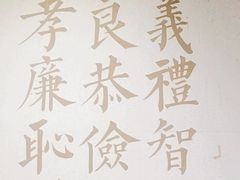 義禮智
良恭儉
孝廉恥